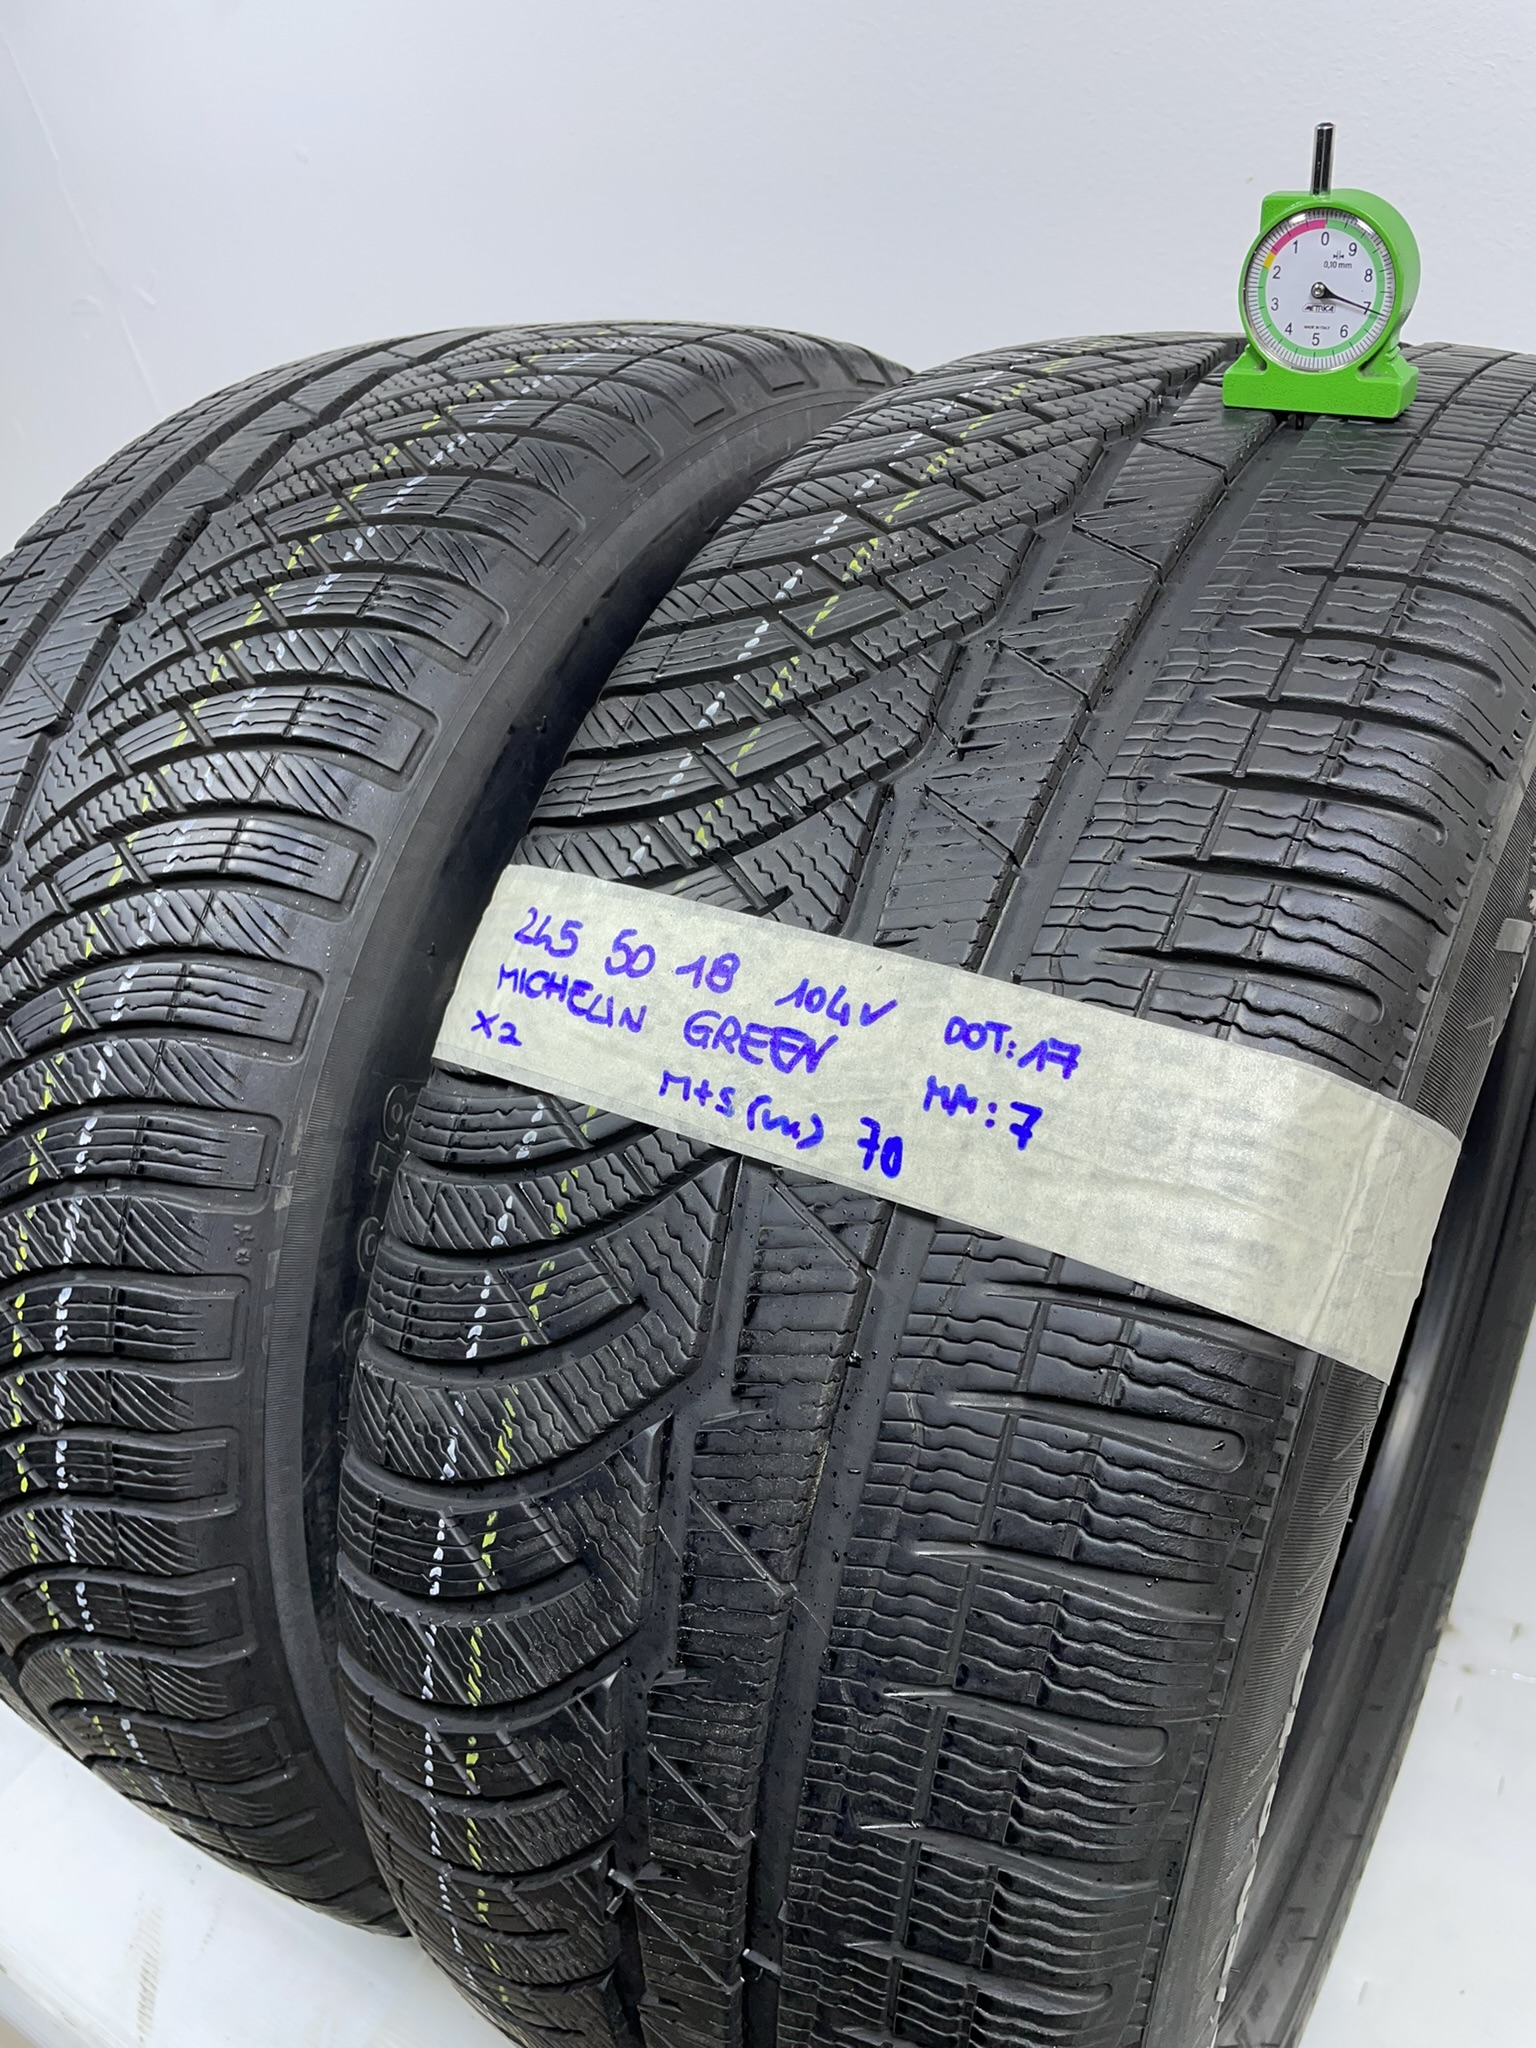 0
1
9
0,10 mm
2
8
METRICA
3
7
MADE IN ITALY
4
6
5
245 50 18 104V DOT: 17
MICHELIN GREEN MM: 7
X2
M+S (M) 70